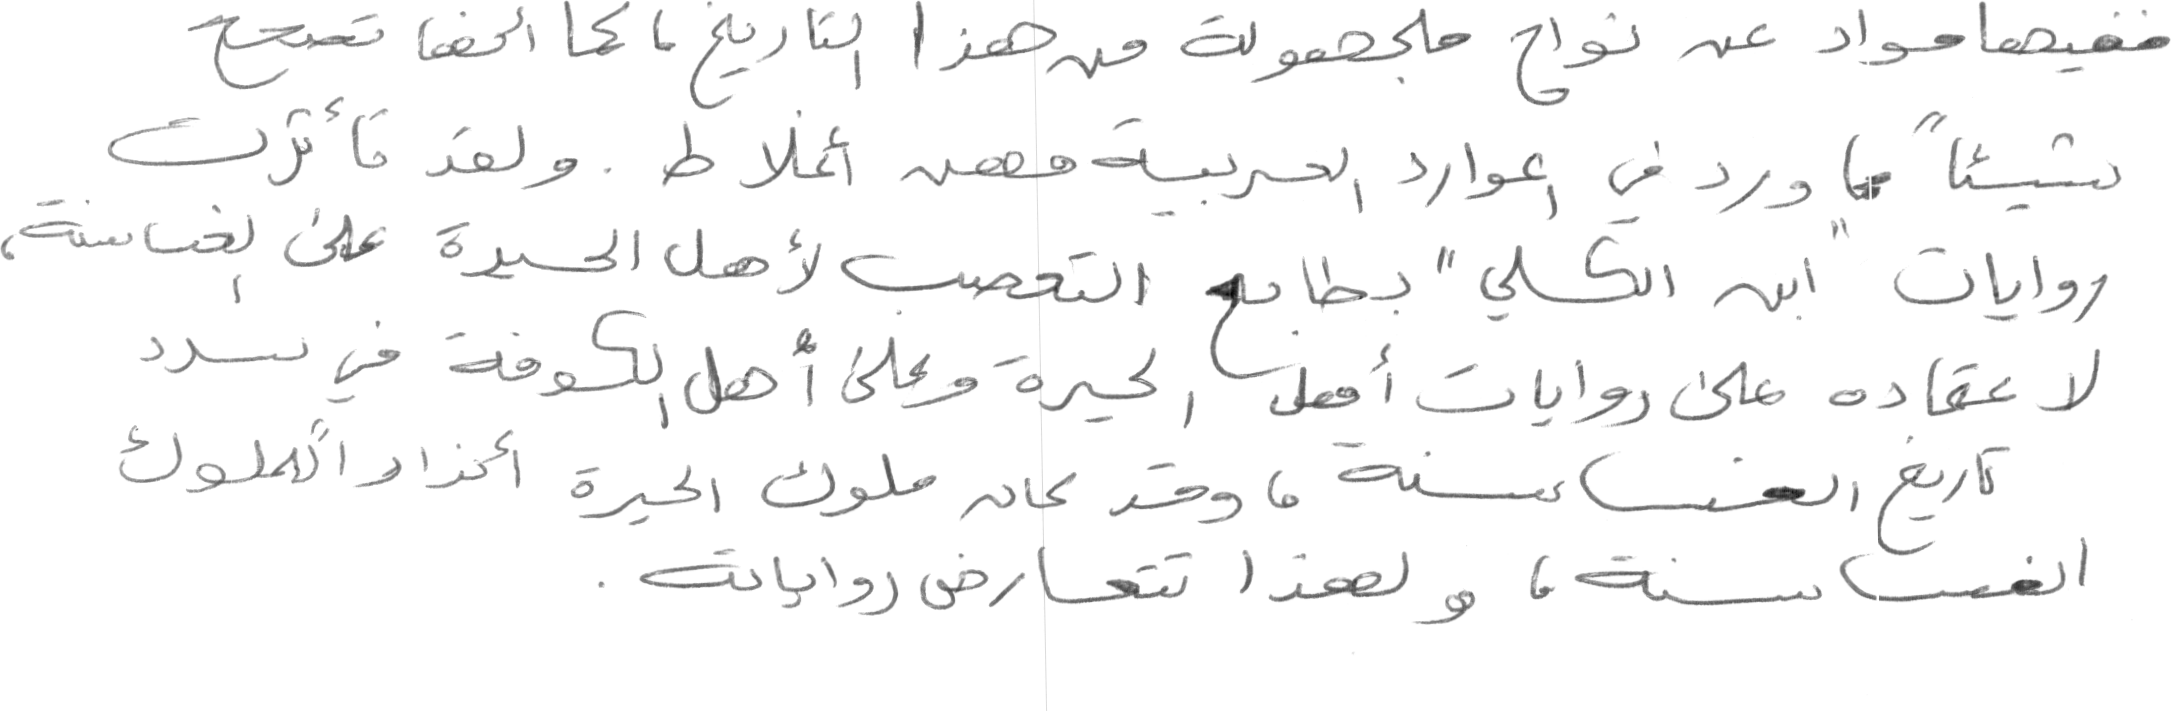 ففيها مواد عن نواح مجهولة من هذا التاريخ، كما أنها تصحح
شيئاً مما ورد في الموارد العربية من أغلاط. ولقد تأثرت
روايات "ابن الكلبي" بطابع التعصب لأهل الحيرة على الغساسنة،
لاعتماده على روايات أهل الحيرة وعلى أهل الكوفة في سرد
تاريخ الغساسنة، وقد كان ملوك الحيرة أنداداً لملوك
الغساسنة، ولهذا تتعارض رواياته.